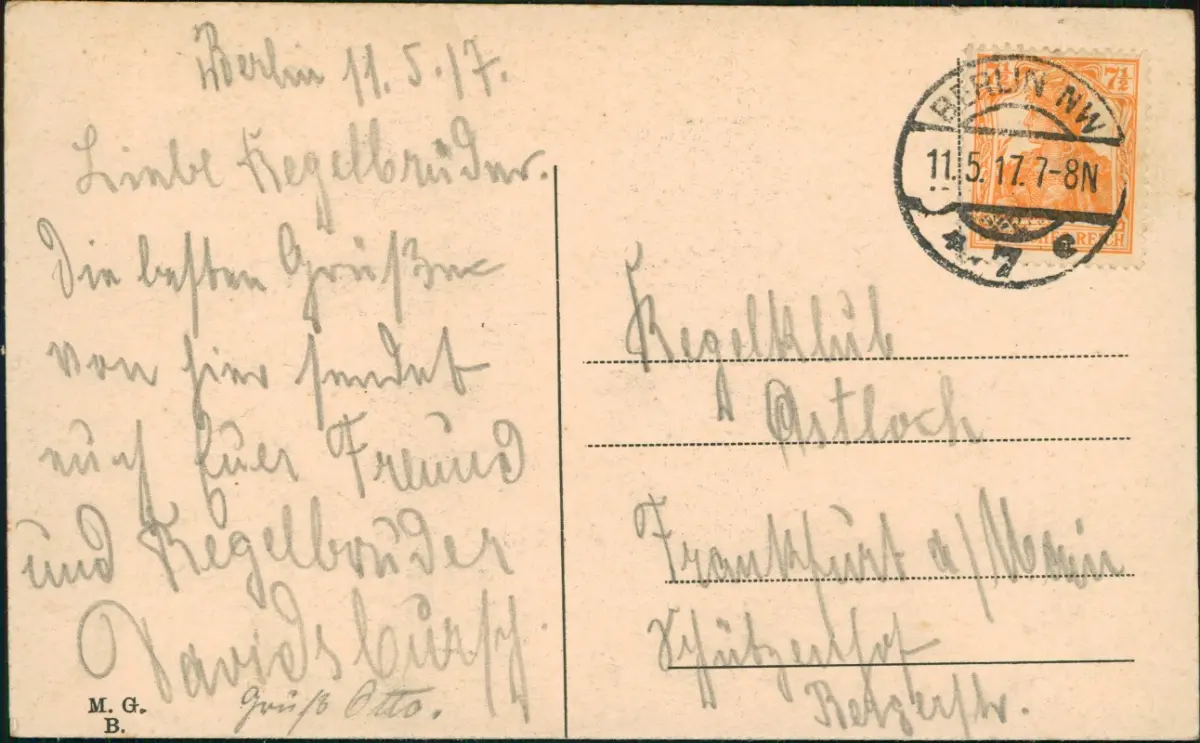 Berlin 11.5.17.
Liebe Kegelbrüder.
Die besten Grüße
von hier sendet
euch Euer Freund
und Kegelbruder
Davidsbursch.
Gruß Otto.
M. G.
B.
BERLIN NW
11.5.17.7-8N
* 7 c
7½ 7½
Kegelklub
Astloch
Frankfurt a/Main
Schützenhof
Bergerstr.